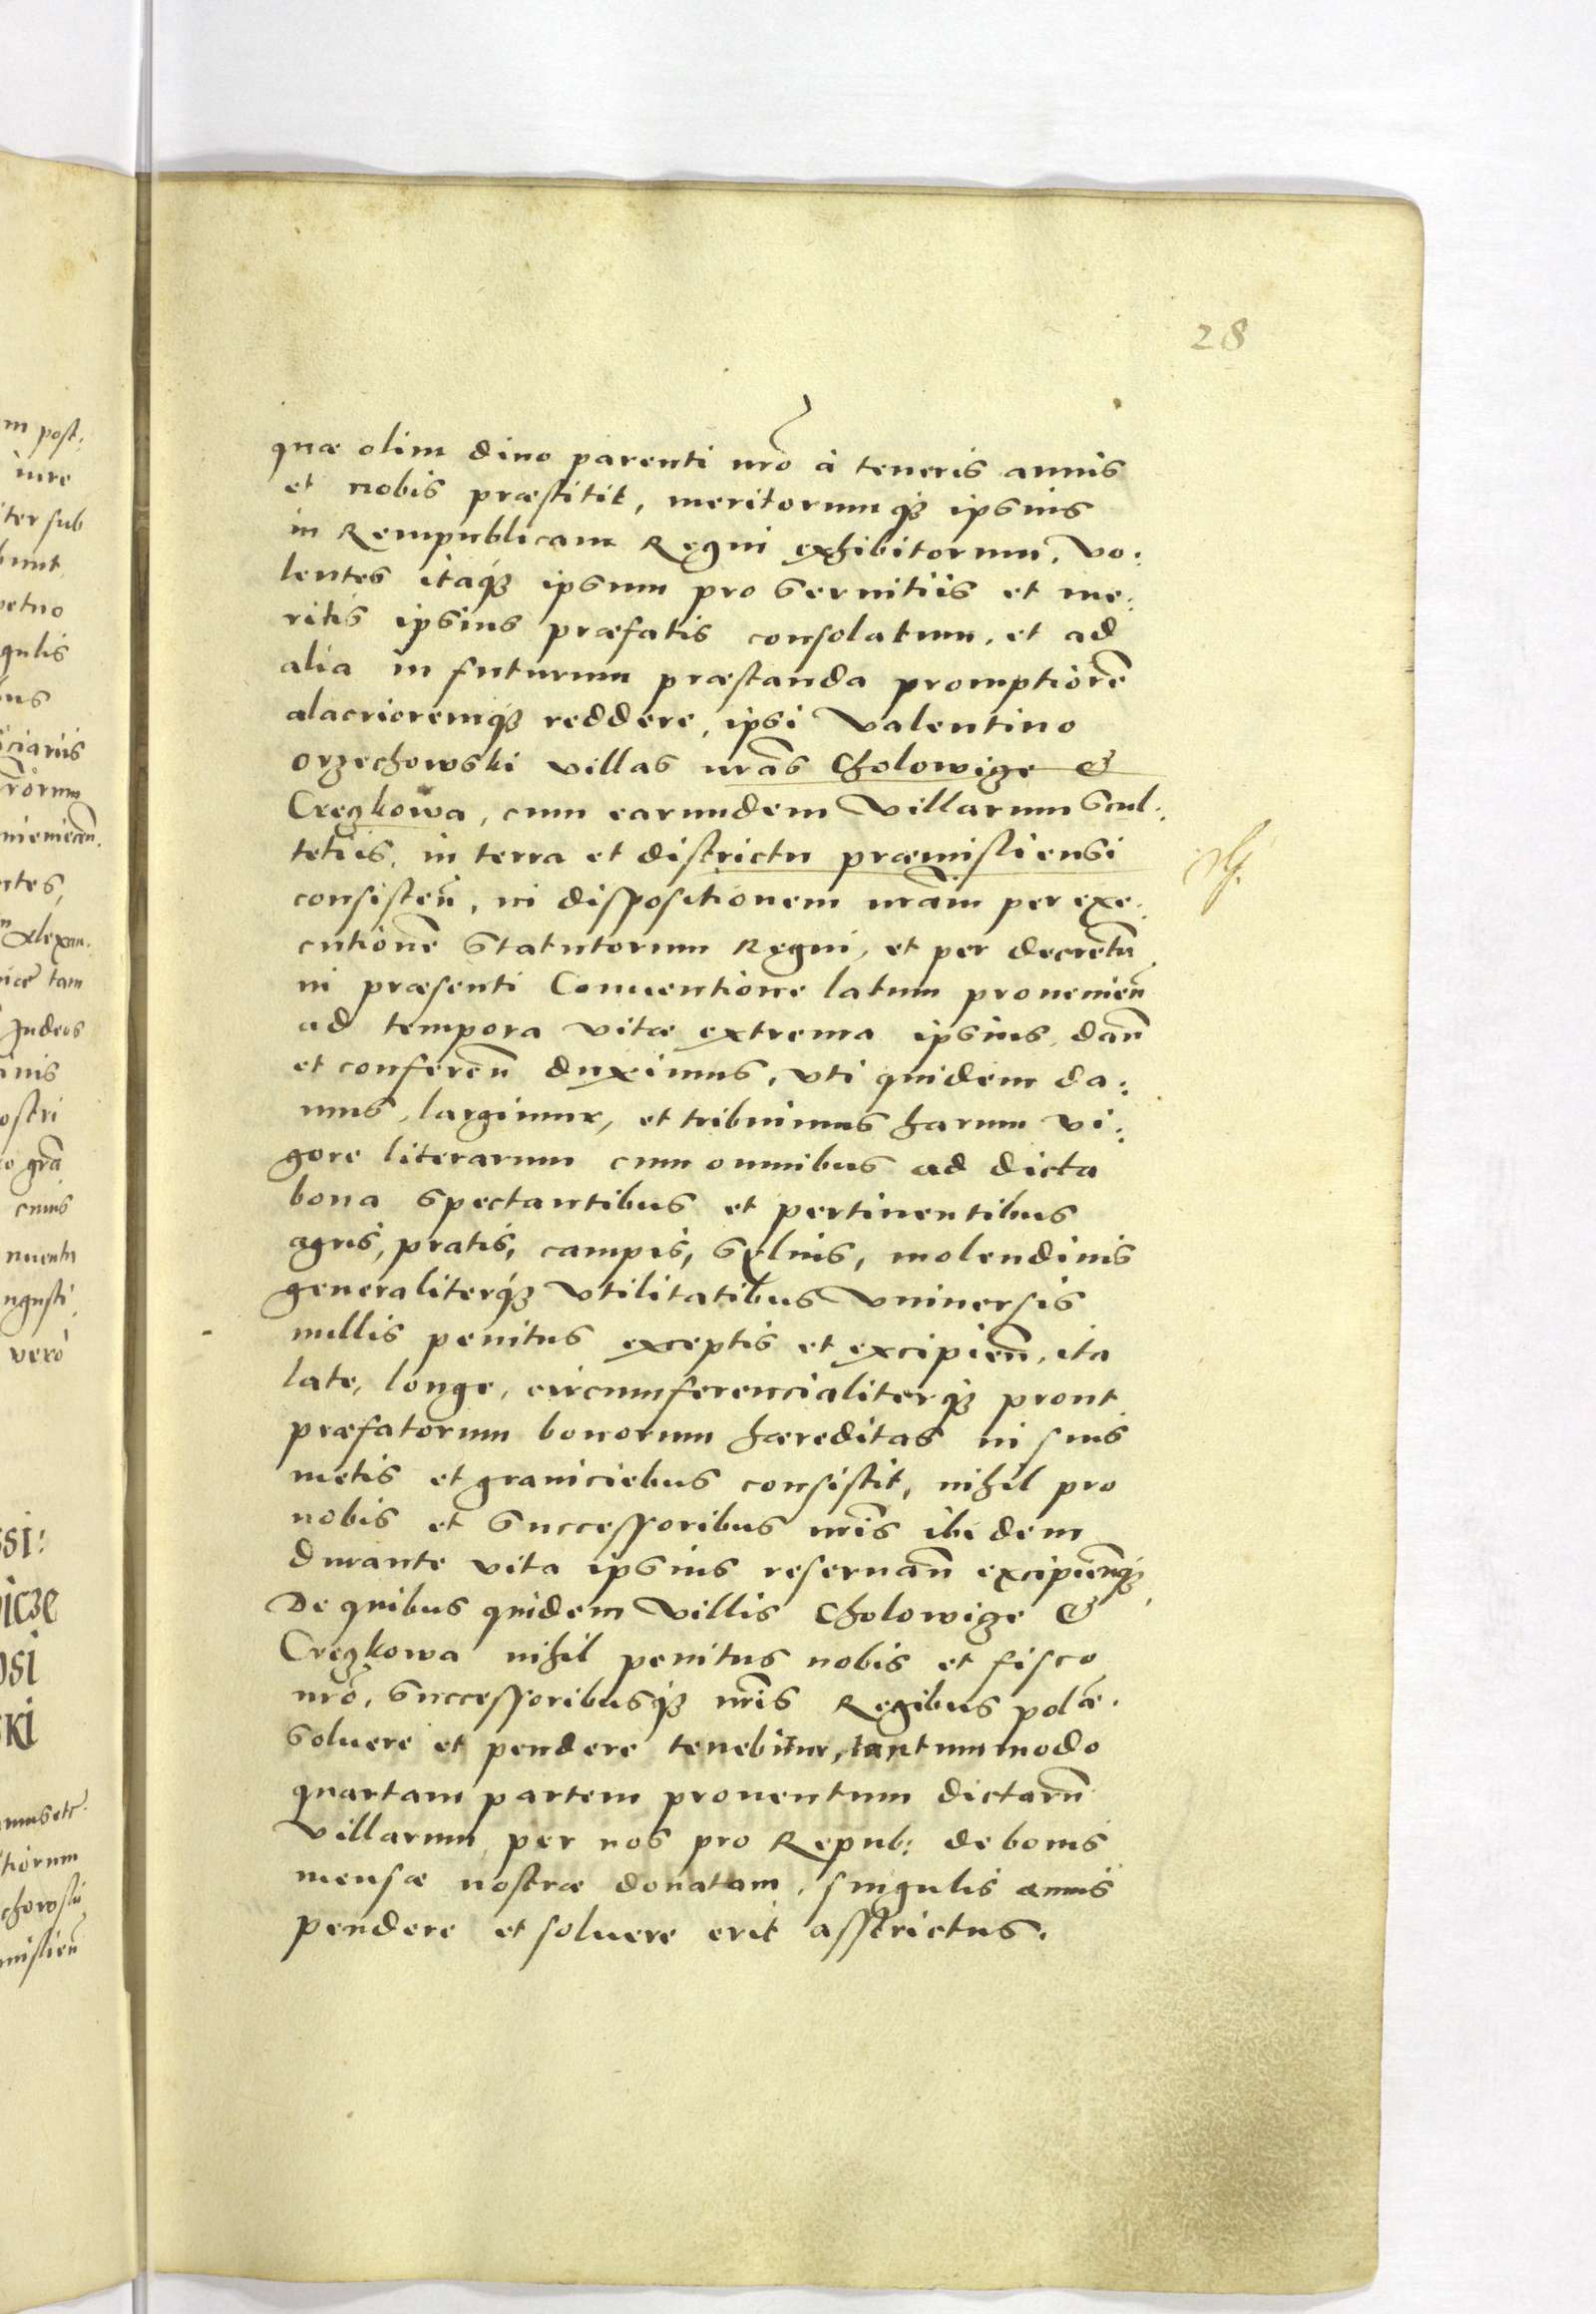 28
quæ olim diuo parenti nr̃o à teneris annis
et nobis præstitit, meritorumq́ꝫ ipsius
in Rempublicam Regni exhibitorum. Vo:
lentes itaq́ꝫ ipsum pro seruitiis et me:
ritis ipsius præfatis consolatum, et ad
alia in futurum præstanda promptiorẽ
alacrioremq́ꝫ reddere, ipsi Valentino
Orzechowski villas nr̃as Cholowige &
Cręgkowa, cum earundem Villarum Scul:
tetiis, in terra et districtu præmisliensi
consisteñ, in dispositionem nr̃am per exe:
cutionẽ Statutorum Regni, et per decretũ
in præsenti Conuentione latum prouenieñ
ad tempora vitæ extrema ipsius, dañ
et confereñ duximus, vti quidem da:
mus, largimur, et tribuimus harum vi:
gore literarum cum omnibus ad dicta
bona spectantibus et pertinentibus
agris, pratis, campis, syluis, molendinis
generaliterq́ꝫ vtilitatibus vniuersis
nullis penitus exceptis et excipieñ, ita
late, longe, circumferencialiterq́ꝫ prout
præfatorum bonorum hæreditas in suis
metis et graniciebus consistit, nihil pro
nobis et successoribus nr̃is ibidem
durante vita ipsius reseruañ excipieñq́ꝫ,
De quibus quidem Villis Cholowige &
Cręgkowa nihil penitus nobis et fisco
nr̃o, successoribusq́ꝫ nr̃is Regibus polæ.
soluere et pendere tenebitur, tantummodo
quartam partem prouentuum dictarũ
Villarum per nos pro Repub: de bonis
mensæ nostræ donatam, singulis annis
pendere et soluere erit asstrictus.